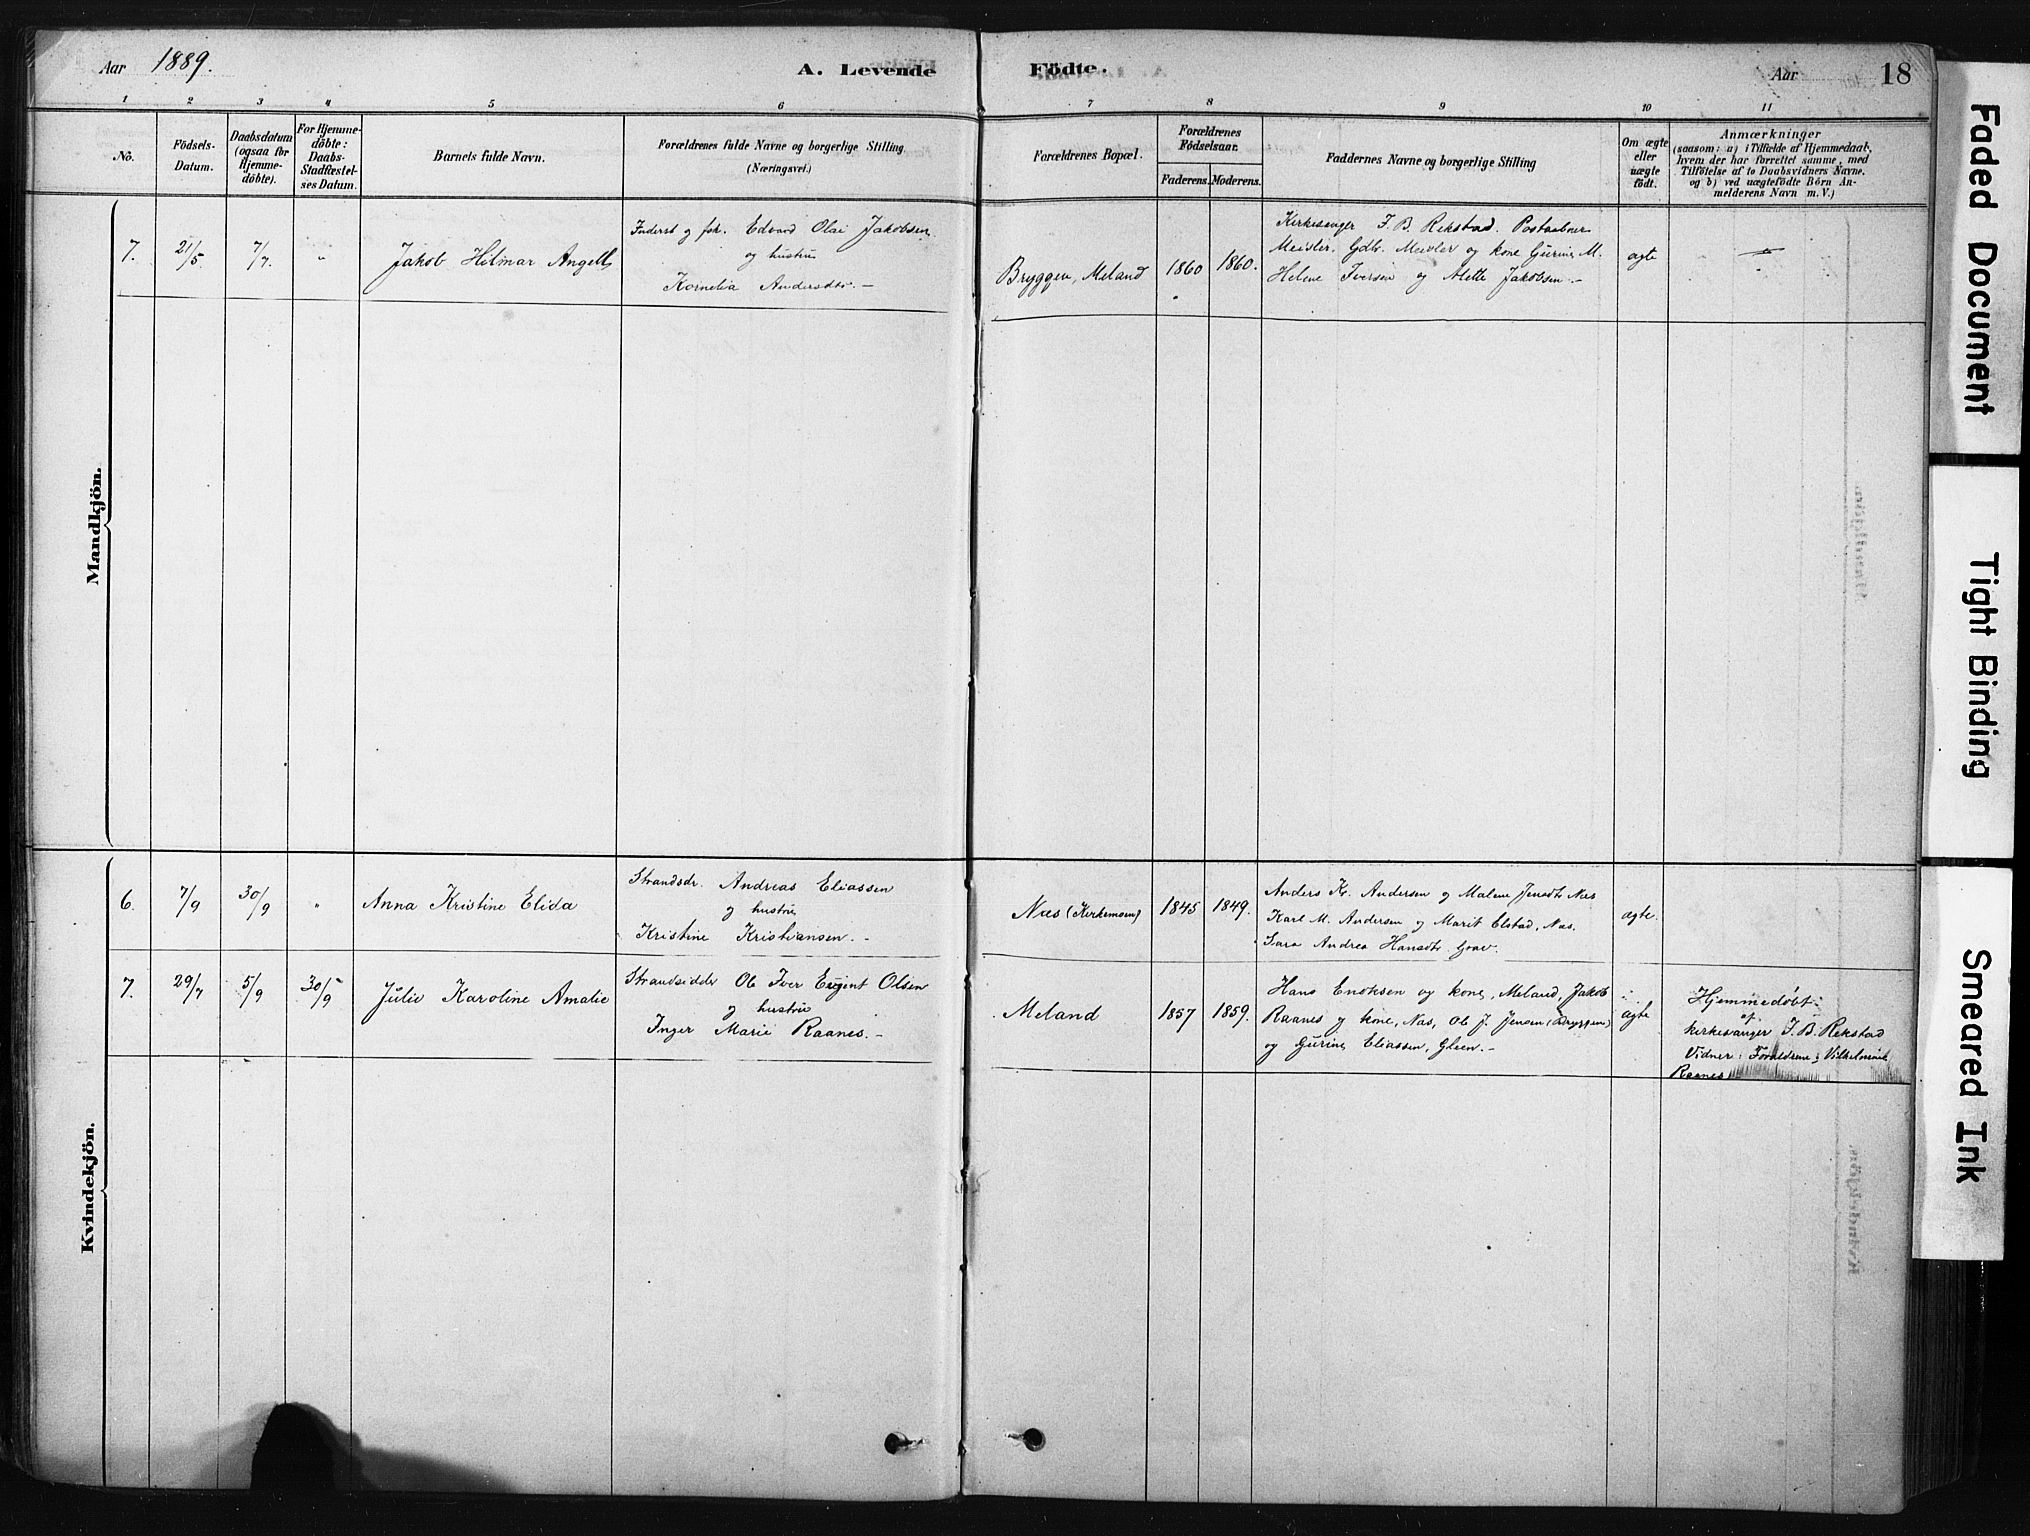 Aar 1889. A. Levende Födte. Aar 18
1 2 3 4 5 6 7 8 9 10 11
No.
Födsels-
Datum.
Daabsdatum
(ogsaa for
Hjemme-
döbte).
For Hjemme-
döbte:
Daabs-
Stadfæstel-
ses Datum.
Barnets fulde Navn.
Forældrenes fulde Navne og borgerlige Stilling
(Næringsvei.)
Forældrenes Bopæl.
Forældrenes
Födselsaar.
Faderens. Moderens.
Faddernes Navne og borgerlige Stilling
Om ægte
eller
uægte
födt.
Anmærkninger
(saasom: a) i Tilfælde af Hjemmedaab,
hvem der har forrettet samme, med
Tilföielse af to Daabsvidners Navne,
og b) ved uægtefödte Börn An-
melderens Navn m. V.)
Mandkjön.
7. 21/5 7/7 " Jakob Hilmar Angell
Inderst g fsk. Edvard Olai Jakobsen
og hustru
Kornelia Andersdtr. -
Bryggen, Meland 1860 1860.
Kirkesanger F. B. Rekstad. Postaabner
Meisler. Gdbr. Meisler og kone Gurine M.
Helene Iversen og Alette Jakobsen. -
ægte
Kvindekjön.
6. 7/9 30/9 " Anna Kristine Elida
Strandsdr. Andreas Eliassen
g hustru
Kristine Kristiansen. -
Næs (Kirkemoen) 1845 1849.
Anders Kr. Andersen g Malene Jensdtr Næs
Karl M. Andersen g Marit Elstad, Næs.
Sara Andrea Hansdtr.
ægte.
7. 29/7 5/9 30/9 Julie Karoline Amalie
Strandsidder Ole Iver Eugent Olsen
g hustru
Inger Marie Raanes. -
Meland 1857 1859.
Hans Enoksen og kone, Meland, Jakob
Raanes g kone, Næs, Ole J. Jensen (Bryggen)
og Gurine Eliassen, Gleen. -
ægte
Hjemmedøbt
af
kirkesanger F. B. Rekstad
Vidner: Forældrene g Vilhelmine
Raanes
Faded Document
Tight Binding
Smeared Ink